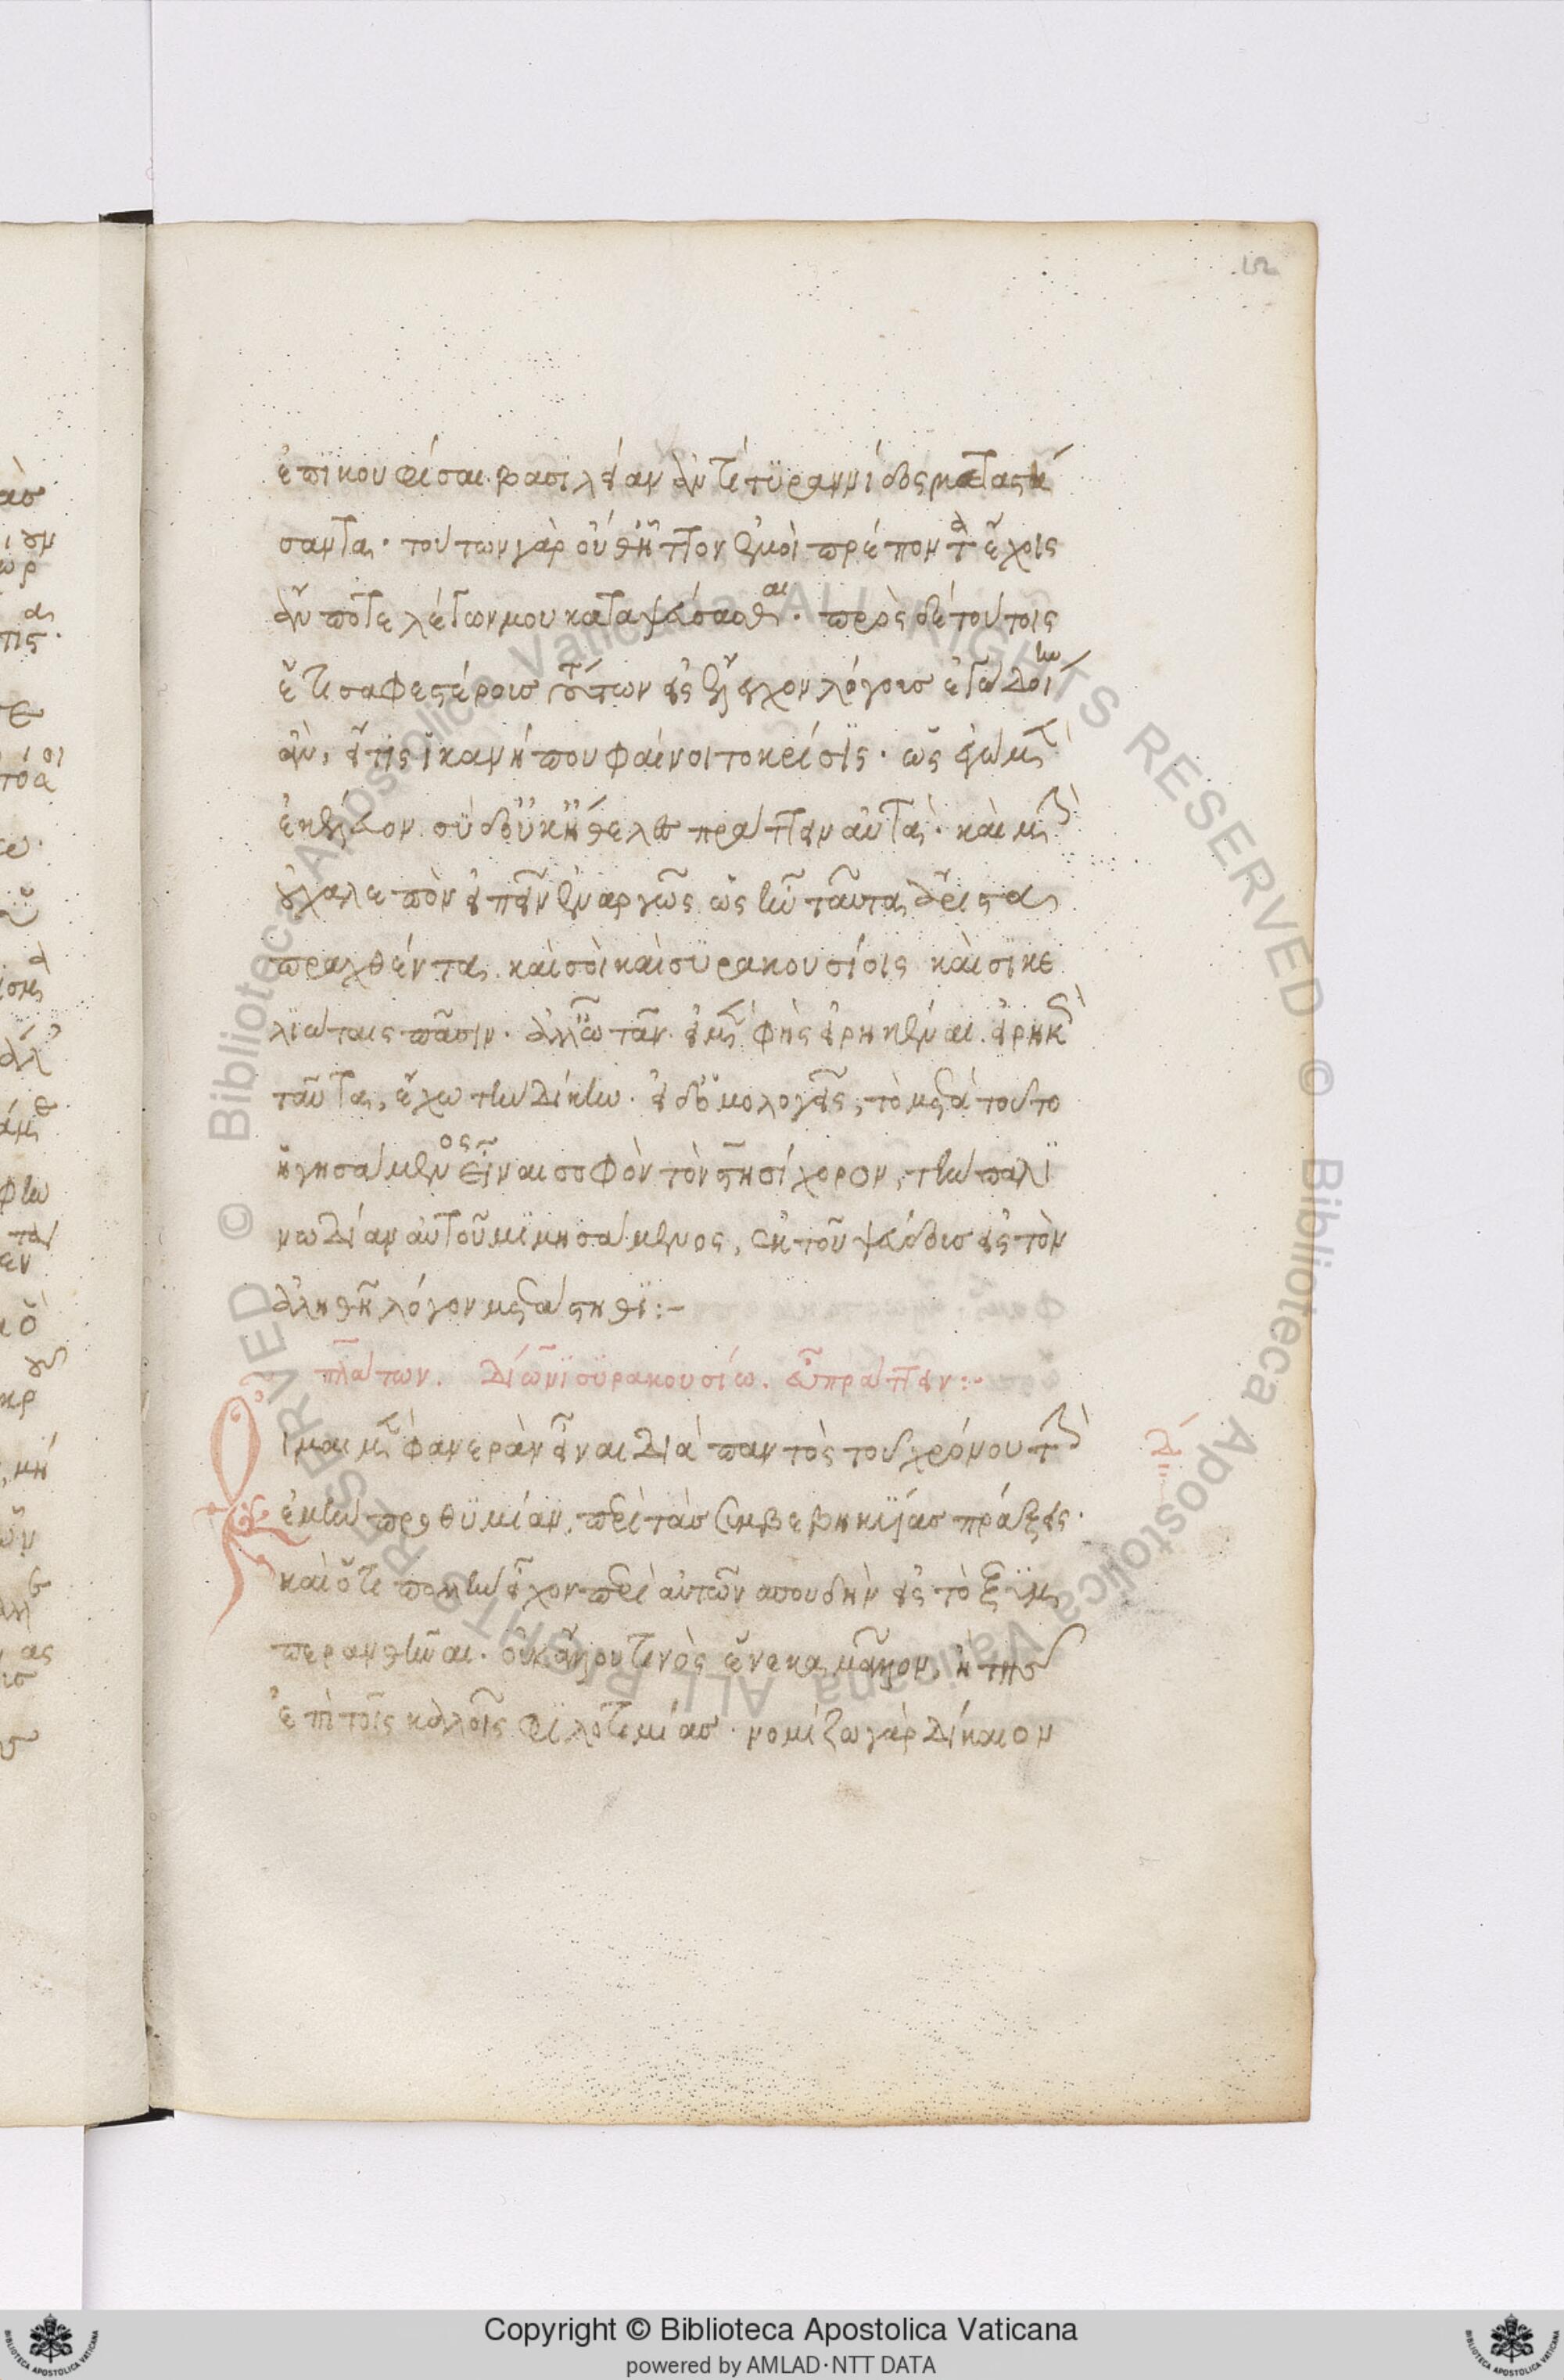 ἐπικουφίσαι. βασιλείαν ἀντὶ τυραννίδος καταστή
σαντα. τούτων γὰρ οὐχ ἧττον ἐμοὶ πρέπον τὰ ἔχοις
ἄν ποτε λέγων μου καταψεύσασθαι. πρὸς δὲ τούτοις
ἔτι σαφεστέροις τούτων εἰς ἔλεγχον λόγοις ἐγὼ δοίην
ἄν, εἴ τις ἱκανή που φαίνοιτο κρίσις. ὡς ἐγὼ μὲν
ἐκέλευον. σὺ δ' οὐκ ἤθελες πράττειν αὐτά. καὶ μὴν
οὐ χαλεπὸν εἰπεῖν ἐναργῶς ὡς ἦν ταῦτα ἄριστα
πραχθέντα καὶ σοὶ καὶ συρακουσίοις καὶ σικε
λιώταις πᾶσιν. ἀλλ' ὦ τᾶν εἰ μὲν φῂς εἰρηκέναι. εἰρηκὼς
ταῦτα, ἔχω τὴν δίκην. εἰ δ' ὁμολογεῖς, τὸ μετὰ τοῦτο
ἡγησάμενος εἶναι σοφὸν τὸν στησίχορον, τὴν παλι
νωδίαν αὐτοῦ μιμησάμενος, ἐκ τοῦ ψεύδους εἰς τὸν
ἀληθῆ λόγον μεταστήθι:-
πλάτων. δίωνι συρακουσίω. εὖ πράττειν:-
Οἶμαι μὲν φανερὰν εἶναι διὰ παντὸς τοῦ χρόνου τὴν
δ'
ἐμὴν προθυμίαν, περὶ τὰς συμβεβηκυίας πράξεις.
καὶ ὅτι πολλὴν εἶχον περὶ αὐτῶν σπουδὴν εἰς τὸ ξυμ
περανθῆναι. οὐκ ἄλλου τινὸς ἕνεκα μᾶλλον, ἢ τῆς
ἐπὶ τοῖς καλοῖς φιλοτιμίας. νομίζω γὰρ δίκαιον
Copyright © Biblioteca Apostolica Vaticana
powered by AMLAD·NTT DATA